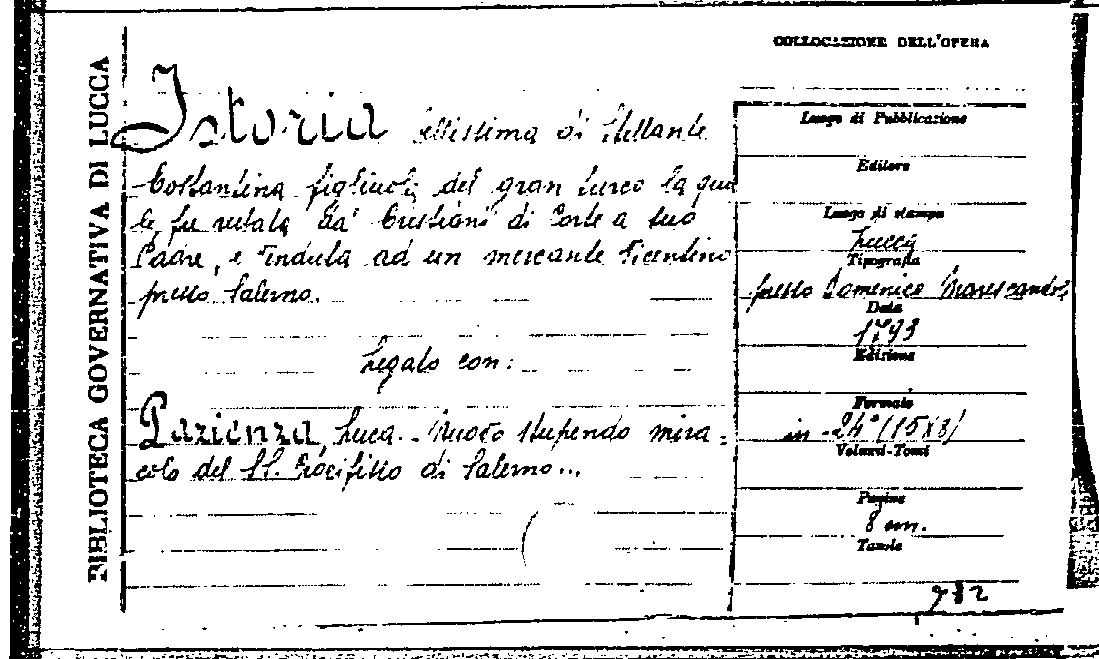 BIBLIOTECA GOVERNATIVA DI LUCCA
Istoria bellissima di Stellante
Costantina figliuola del gran turco la qua
le fu rubata da' Cristiani di Corte a suo
Padre, e venduta ad un mercante Vicentino
presso Salerno.
Legato con:
Pazienza Luca. Nuovo stupendo mira=
colo del SS. Crocifisso di Salerno...
COLLOCAZIONE DELL'OPERA
Luogo di Pubblicazione
Editore
Luogo di stampa
Lucca
Tipografia
presso Domenico Marescandoli
Data
1793
Edizione
Formato
in-24° (15x8)
Volumi-Tomi
Pagine
8 nn.
Tavole